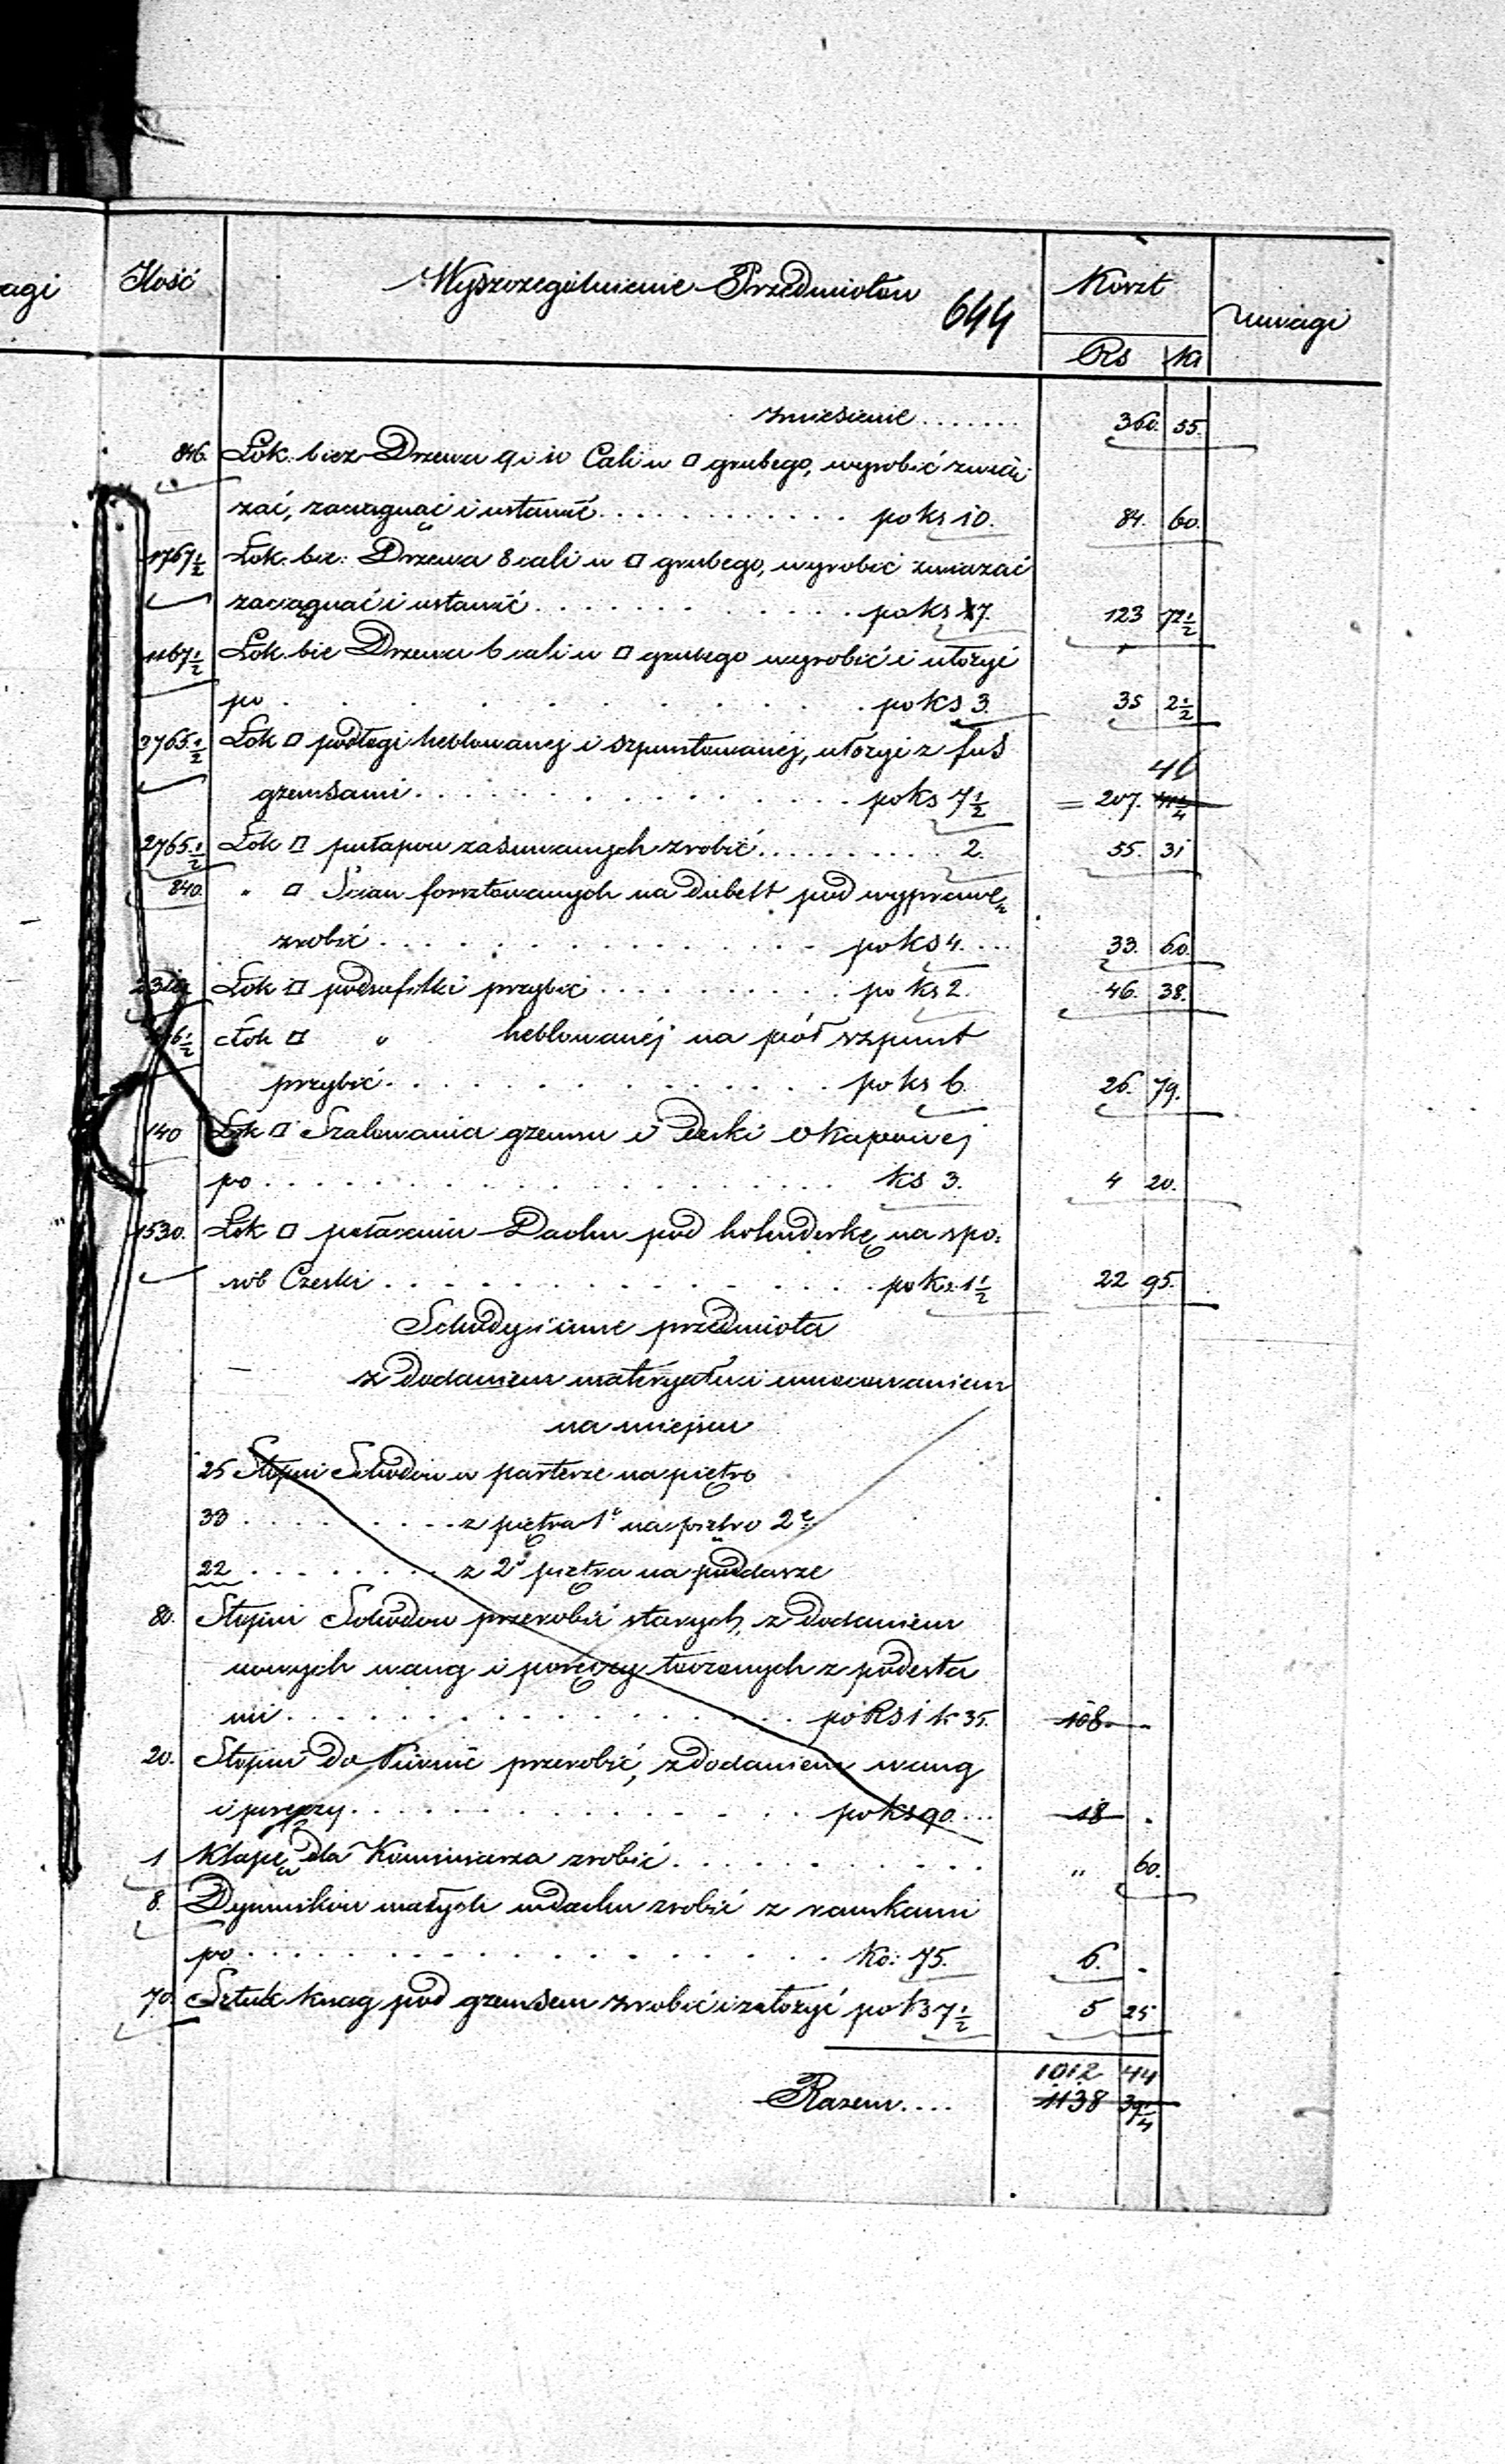 agi Ilość Wyszczególnienie Przedmiotów 644 Koszt Uwagi
Rs Ko
zniesienie . . . . . . . 360. 55.
846. Łok. bież Drzewa 9 i 10 Cali w □ grubego, wyrobić zwią
zać, zaciągnąć i ustawić . . . . . . . . . . . po ks 10. 84. 60.
1767½ Łok. bie: Drzewa 8 cali w □ grubego, wyrobić związać
zaciągnąć i ustawić . . . . . . . . . . . po ks 7. 123 72½
1167½ Łok. bie Drzewa 6 cali w □ grubego wyrobić i ułożyć
po . . . . . . . . . . . po ks 3. 35 2½
2765.½ Łok □ podłogi heblowanej i szpuntowanéj, ułożyć z fus
46
gzemsami . . . . . . . . . . . po ks 7½ = 207. 41¼
2765.½ Łok □ pułapow zasuwanych zrobić . . . . . . . . . 2. 55. 31
840. " □ Ścian forsztowanych na dubelt pod wyprawę
zrobić . . . . . . . . . . . po ks 4. . . . 33. 60.
Łok □ podsufitki przybić . . . . . . . . . po ks 2. 46. 38.
6½ Łok □ " heblowanéj na pół szpunt
przybić . . . . . . . . . . . po ks 6. 26. 79.
140 Łok □ Szalowania gzemsu i deski okapowej
po . . . . . . . . . . . ks 3. 4 20.
1530. Łok □ połacenia Dachu pod holenderkę na spo:
sób Czeski . . . . . . . . . . . po ks. 1½ 22 95.
Schody i inne przedmiota
z dodaniem materyałui umocowaniem
na miejscu
25 Stopni Schodów w parterze na piętro
33 . . . . . . . . z piętra 1º na piętro 2e
22 . . . . . . . . z 2º piętra na poddasze
80. Stopni Schodów przerobić starych, z dodaniem
nowych wang i poręczy toczonych z podesta
mi . . . . . . . . . . . po Rs 1 k 35. 108. -
20. Stopni do Piwnic przerobić, z dodaniem wang
i poręczy . . . . . . . . . . . po ks 90 . . . 18 .
1 Klapę dla Kominiarza zrobić . . . . . . . . . " 60.
8. Dymników małych w dachu zrobić z ramkami
po . . . . . . . . . . . Ko: 75. 6. .
70. Sztuk knag pod gzemsem zrobić i założyć po ks 7½ 5 25
1012 44
Razem . . . . 1138 39¼